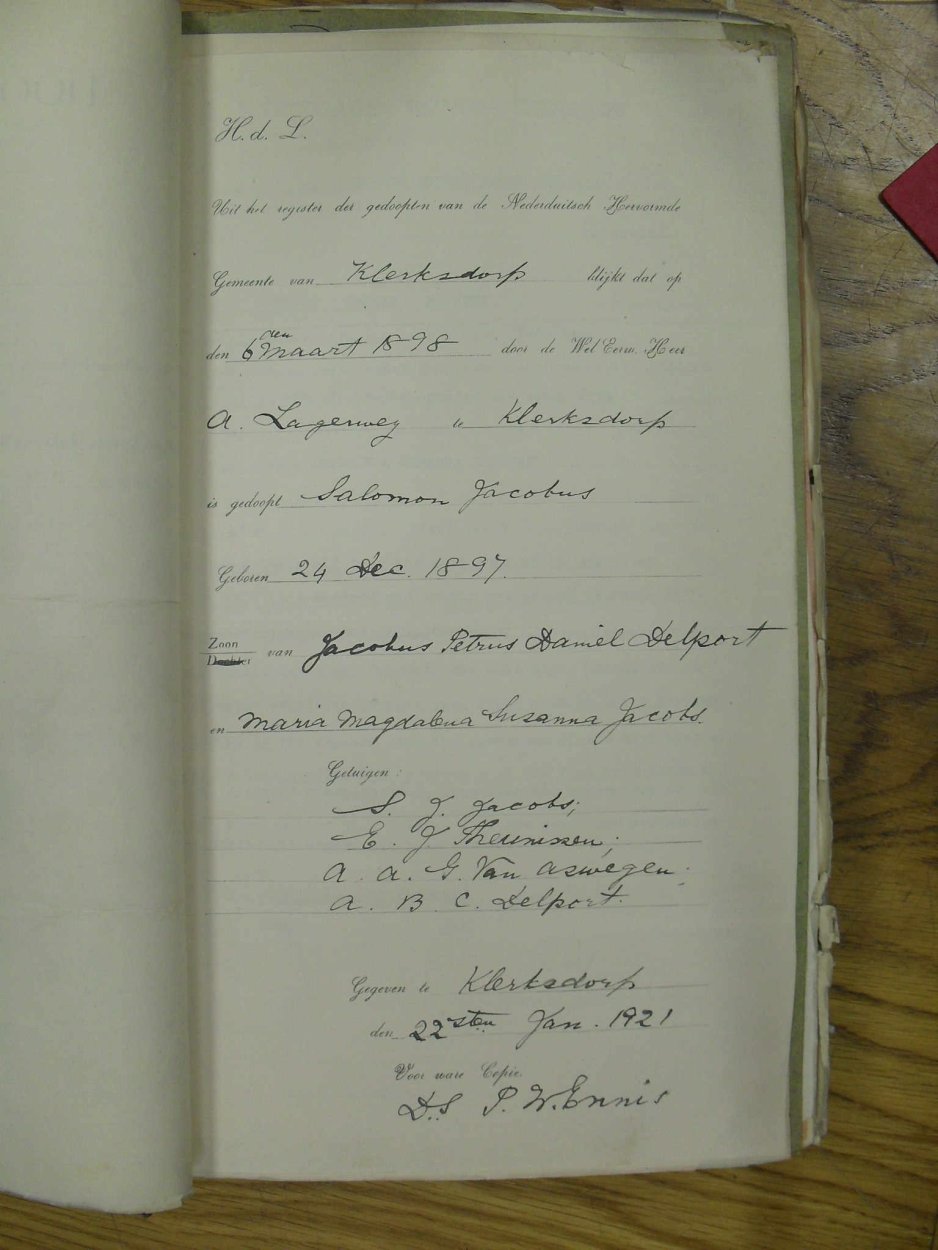 H. d. L.
Uit het register der gedoopten van de Nederduitsch Hervormde
Gemeente van Klerksdorp blijkt dat op
den 6den Maart 1898 door de Wel Eerw. Heer
A. Lagerwey te Klerksdorp
is gedoopt Salomon Jacobus
Geboren 24 Dec. 1897.
Zoon
Dochter van Jacobus Petrus Daniel Delport
en Maria Magdalena Suzanna Jacobs.
Getuigen:
S. J. Jacobs;
E. J Theunissen;
A. A. G. Van Aswegen.
A. B. C. Delport.
Gegeven te Klerksdorp
den 22sten Jan. 1921
Voor ware Copie.
DS P. W. Ennis